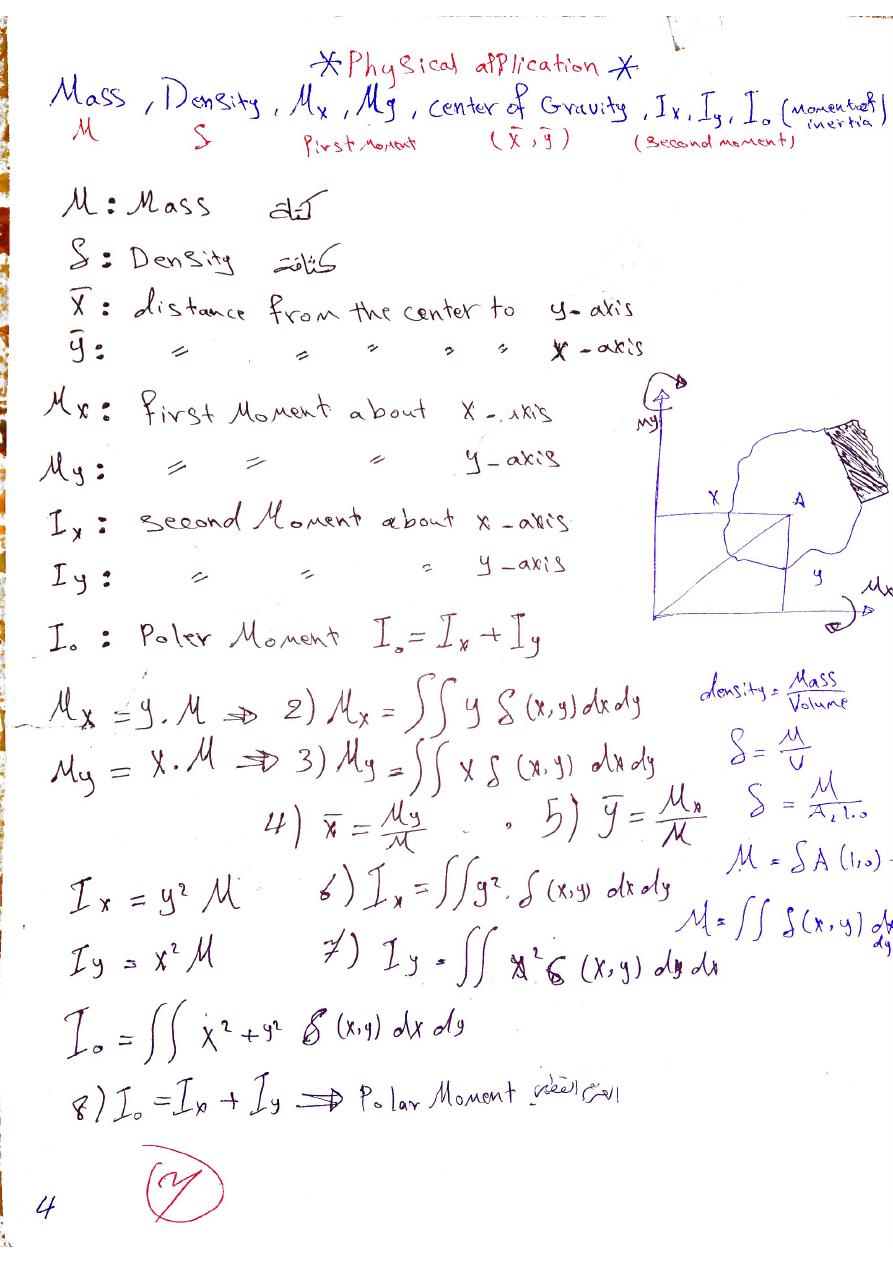 * Physical application *
Mass , Density , Mx , My , center of Gravity , Ix , Iy , I₀ (Moment of inertia)
M δ First Moment (x̄ , ȳ) (Second moment)
M : Mass كتلة
δ : Density كثافة
x̄ : distance from the center to y-axis
ȳ : = = = = = x-axis
Mx : first Moment about x-axis
My : = = = y-axis
My
Ix : second Moment about x-axis
x A
Iy : = = = y-axis
y
Mx
I₀ : Poler Moment I₀ = Ix + Iy
density = Mass / Volume
Mx = y . M ⇒ 2) Mx = ∫∫ y δ (x,y) dx dy
δ = M / V
My = x . M ⇒ 3) My = ∫∫ x δ (x,y) dx dy
δ = M / A, 1.0
4) x̄ = My / M . 5) ȳ = Mx / M
M = δ A (1,0)
Ix = y² M 6) Ix = ∫∫ y² . δ (x,y) dx dy
M = ∫∫ δ (x,y) dx dy
Iy = x² M 7) Iy = ∫∫ x² δ (x,y) dy dx
I₀ = ∫∫ x² + y² δ (x,y) dx dy
8) I₀ = Ix + Iy ⇒ Polar Moment العزم القطبي
4